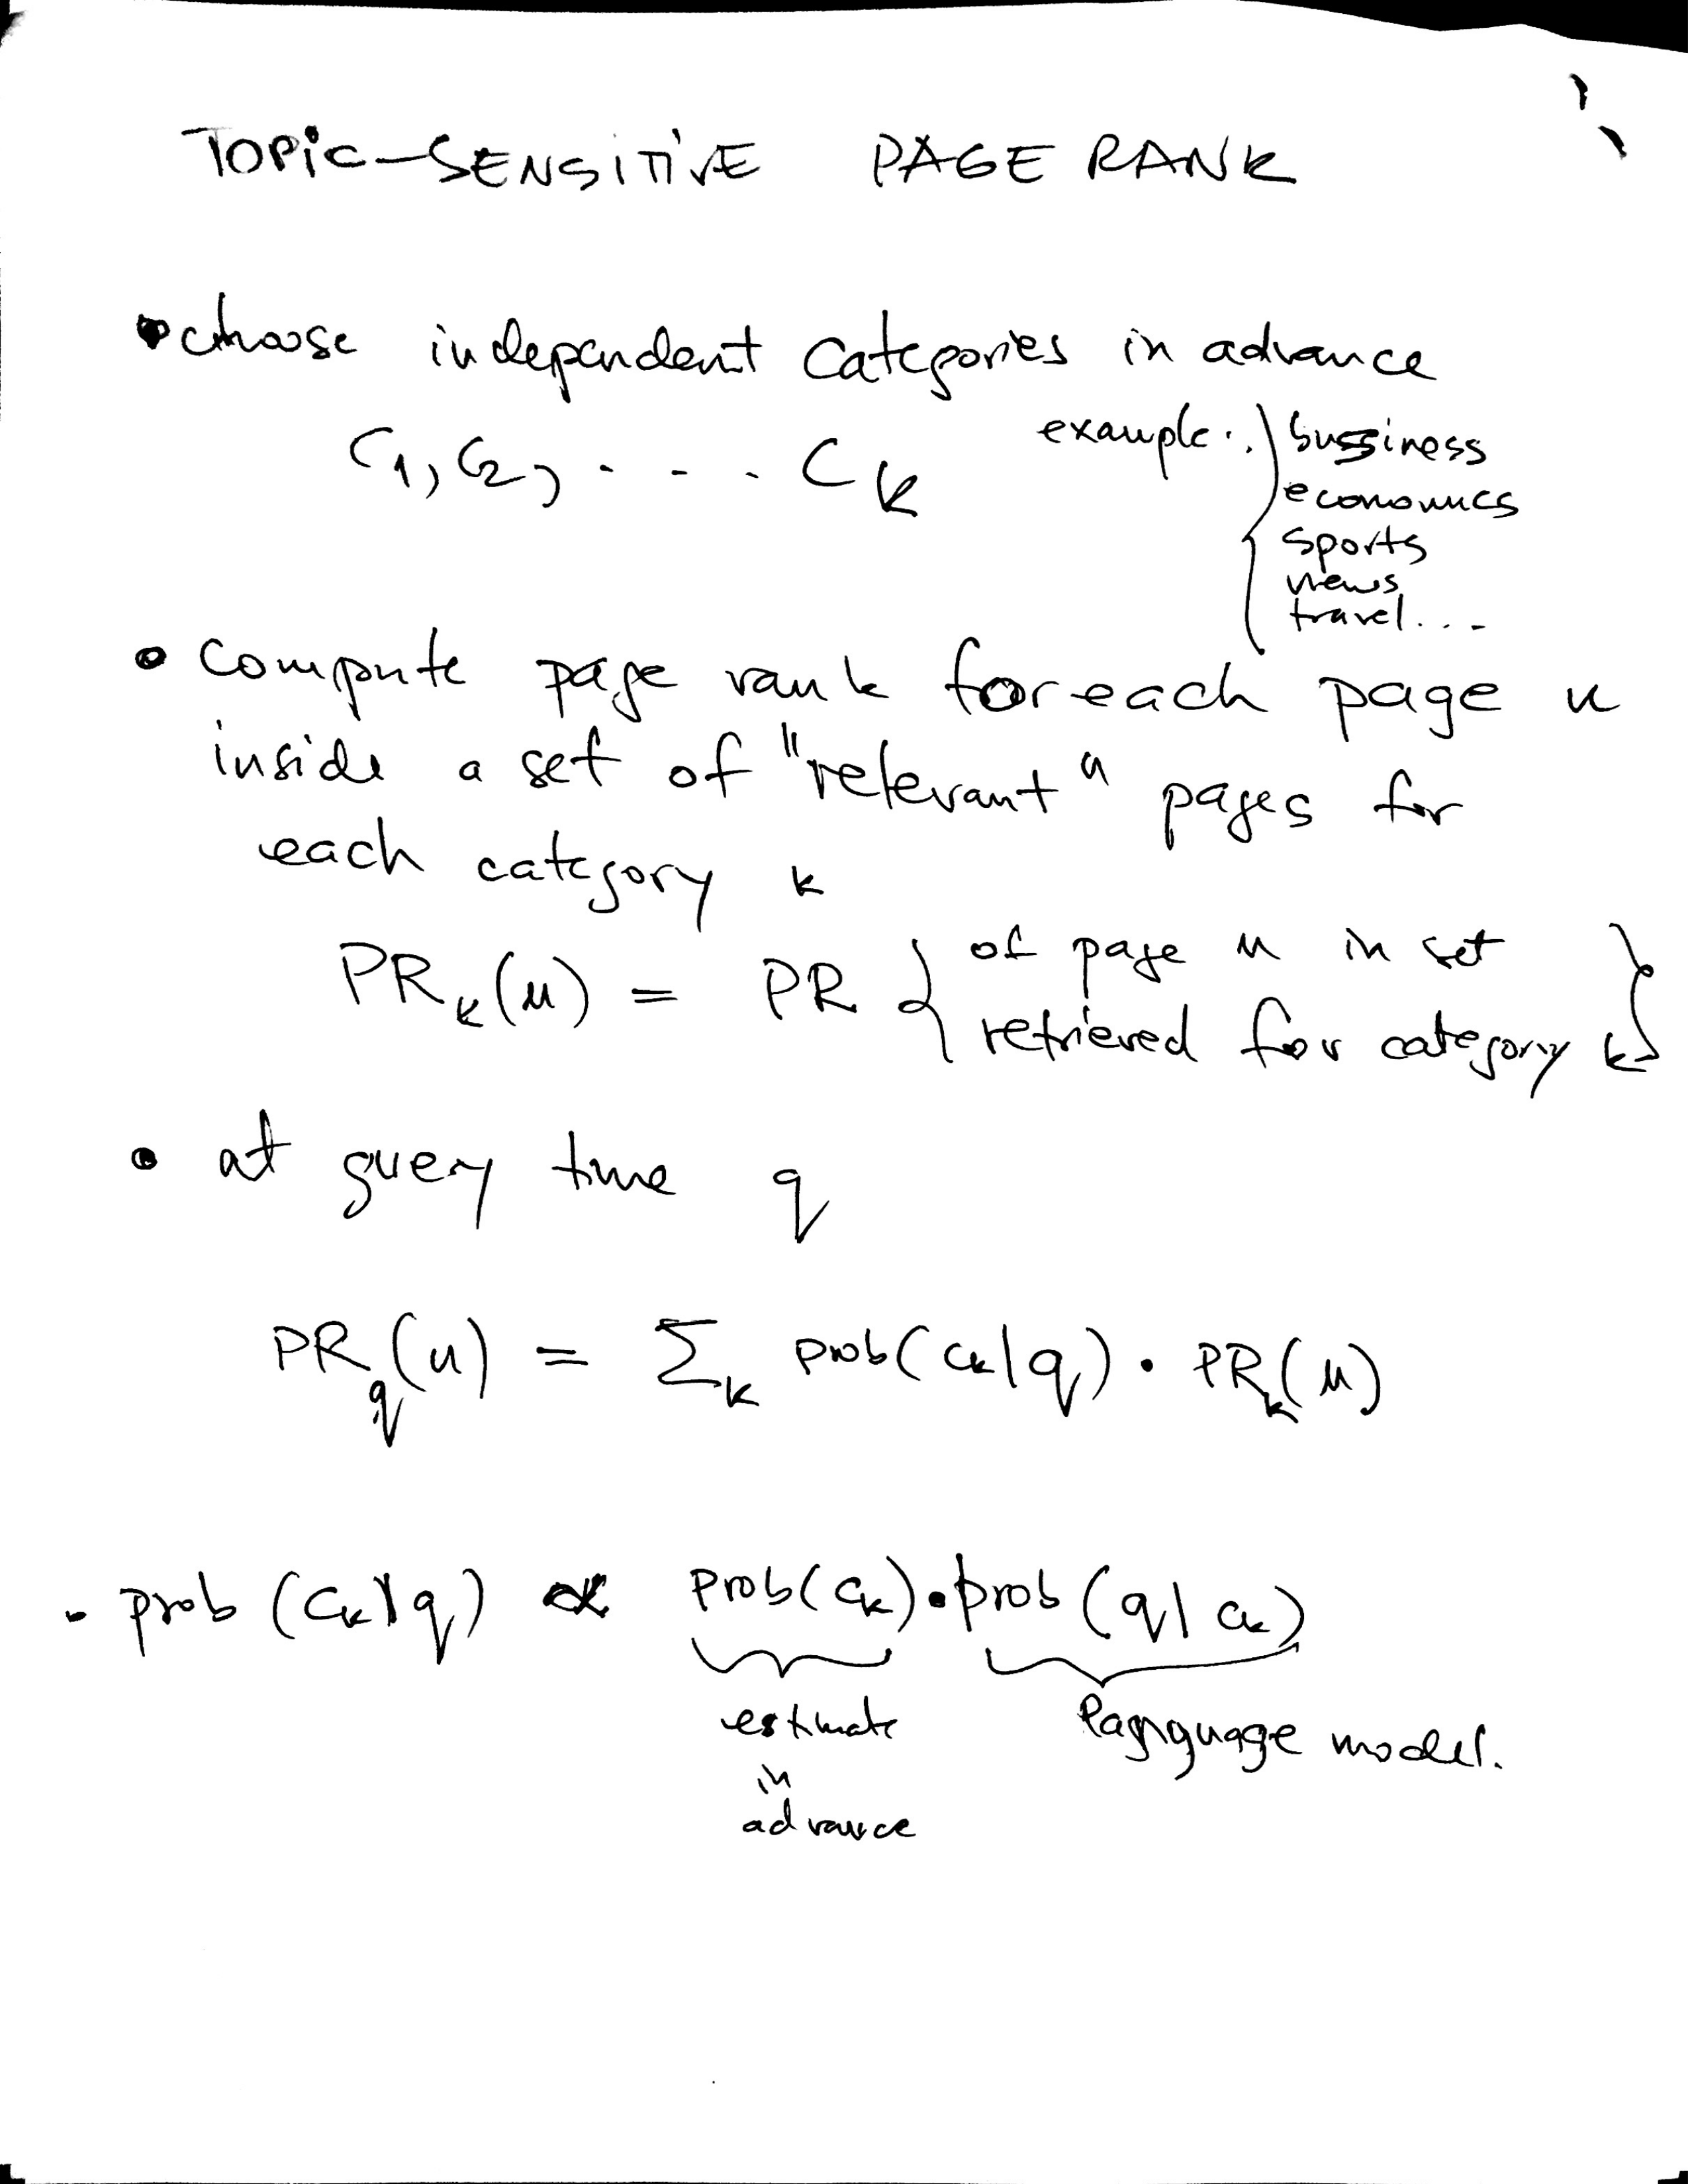 TOPIC-SENSITIVE PAGE RANK
• choose independent categories in advance
C1, C2, . . . . CK
example: { bussiness
economics
sports
news
travel...
• compute page rank for each page u
inside a set of "relevant" pages for
each category k
PR_k(u) = PR { of page u in set
retrieved for category k }
• at query time q
PR_q(u) = Σ_k prob(c_k|q) · PR_k(u)
• prob(c_k|q) ∝ prob(c_k) · prob(q|c_k)
estimate
in
advance
language model.